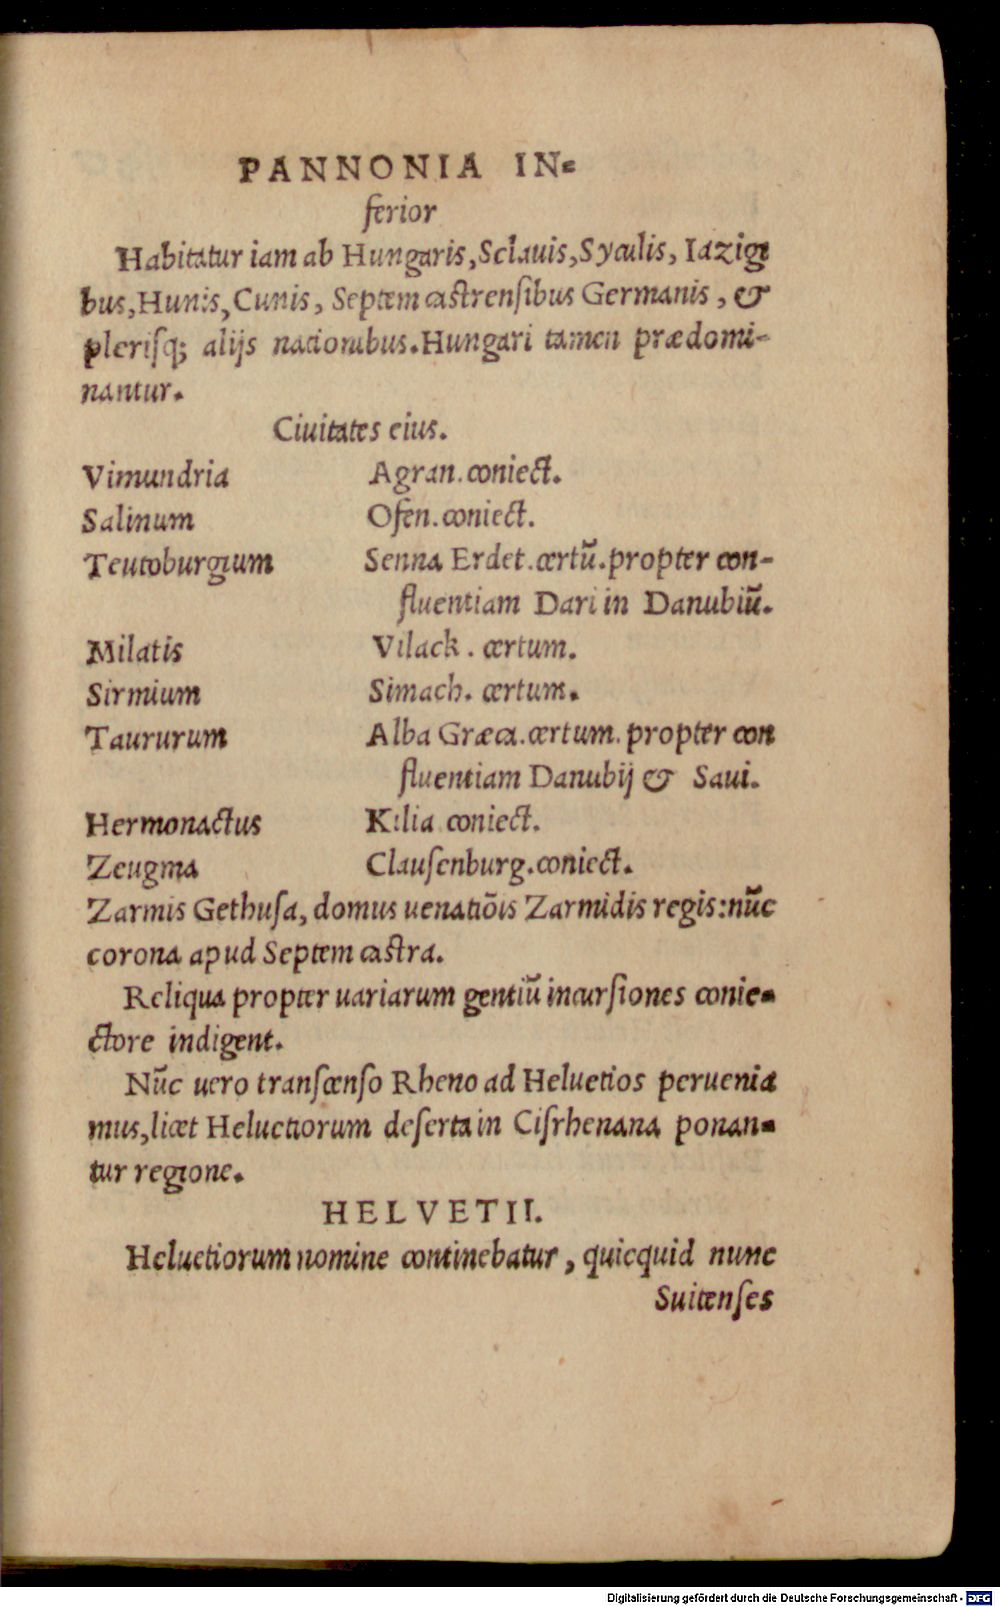 PANNONIA IN-
ferior
Habitatur iam ab Hungaris, Sclauis, Syculis, Iazigi
bus, Hunis, Cunis, Septem castrensibus Germanis, &
plerisq; alijs nationibus. Hungari tamen prædomi-
nantur.
Ciuitates eius.
Vimundria Agran. coniect.
Salinum Ofen. coniect.
Teutoburgium Senna Erdet. certũ. propter con-
fluentiam Dari in Danubiũ.
Milatis Vilack. certum.
Sirmium Simach. certum.
Taururum Alba Græca. certum. propter con
fluentiam Danubij & Saui.
Hermonactus Kilia coniect.
Zeugma Clausenburg. coniect.
Zarmis Gethusa, domus uenatiõis Zarmidis regis: nũc
corona apud Septem castra.
Reliqua propter uariarum gentiũ incursiones conie-
ctore indigent.
Nũc uero transcenso Rheno ad Heluetios peruenia
mus, licet Heluetiorum deserta in Cisrhenana ponan-
tur regione.
HELVETII.
Heluetiorum nomine continebatur, quicquid nunc
Suitenses
Digitalisierung gefördert durch die Deutsche Forschungsgemeinschaft - DFG